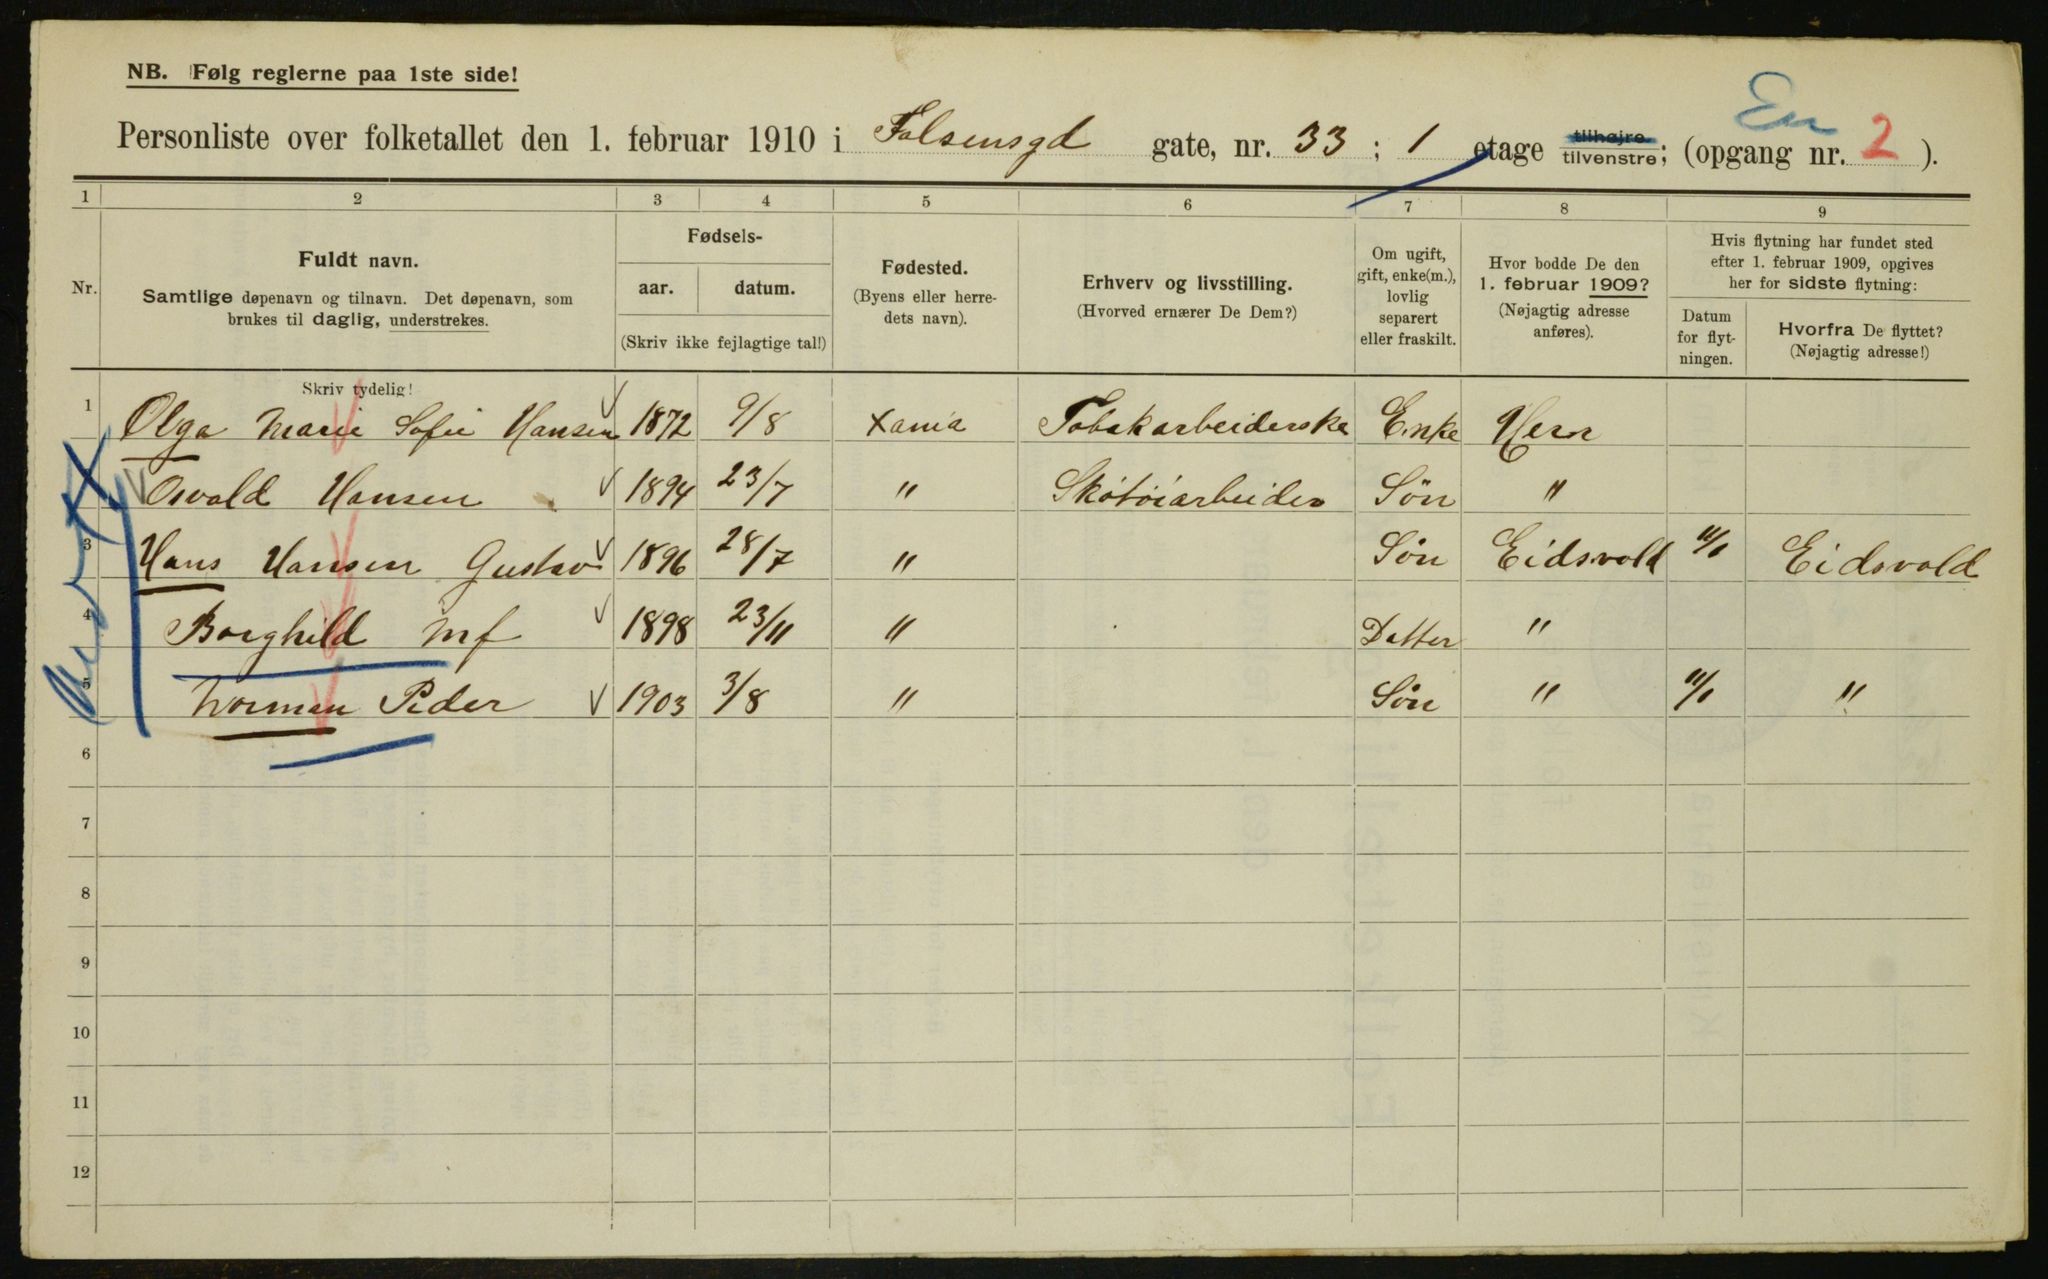 NB. Følg reglerne paa 1ste side!
En
Personliste over folketallet den 1. februar 1910 i Falsensgd gate, nr. 33 ; 1 etage tilhøjre tilvenstre; (opgang nr. 2 ).
1 2 3 4 5 6 7 8 9
Nr.
Fuldt navn.
Samtlige døpenavn og tilnavn. Det døpenavn, som
brukes til daglig, understrekes.
Skriv tydelig!
Fødsels-
aar. datum.
(Skriv ikke fejlagtige tal!)
Fødested.
(Byens eller herre-
dets navn).
Erhverv og livsstilling.
(Hvorved ernærer De Dem?)
Om ugift,
gift, enke(m.),
lovlig
separert
eller fraskilt.
Hvor bodde De den
1. februar 1909?
(Nøjagtig adresse
anføres).
Hvis flytning har fundet sted
efter 1. februar 1909, opgives
her for sidste flytning:
Datum
for flyt-
ningen.
Hvorfra De flyttet?
(Nøjagtig adresse!)
1 Olga Marie Sofie Hansen 1872 9/8 Xania Tobakarbeiderske Enke Herr
Osvald Hansen 1894 23/7 " Skotöiarbeider Sön "
3 Hans Hansen Gustav 1896 28/7 " Sön Eidsvold 11/1 Eidsvold
4 Borghild Mf 1898 23/11 " Datter "
5 Norman Peder 1903 3/8 " Sön " 11/1 "
6
7
8
9
10
11
12